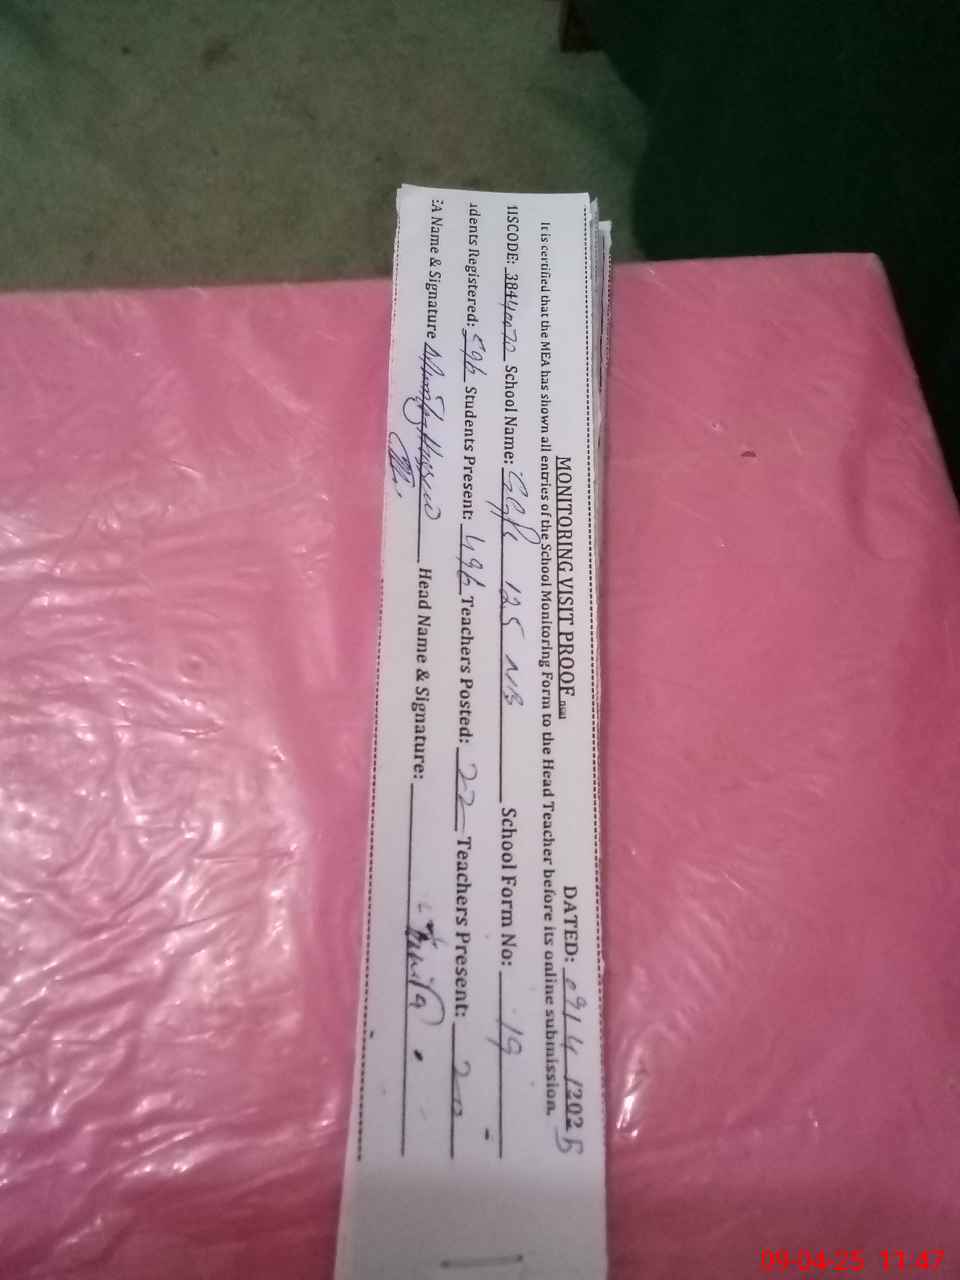 MONITORING VISIT PROOF DATED: 09/4/2025
It is certified that the MEA has shown all entries of the School Monitoring Form to the Head Teacher before its online submission.
IISCODE: School Name: 125 NB School Form No: 19
dents Registered: 596 Students Present: 496 Teachers Posted: 22 Teachers Present: 20
EA Name & Signature Head Name & Signature:
09-04-25 11:47